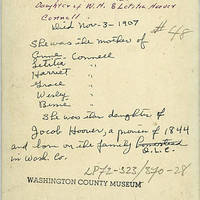 Daughter of W.H. & Letitia Hoover
Connell
Died Nov-3-1907
#48
She was the mother of
Anna Connell
Letitia "
Harriet "
Grace "
Wesley "
Bessie "
She was the daughter of
Jocob Hoover, a pioneer of 1844
and born on the family homestead
in Wash Co. D.L.C.
LP72-323/870-28
WASHINGTON COUNTY MUSEUM